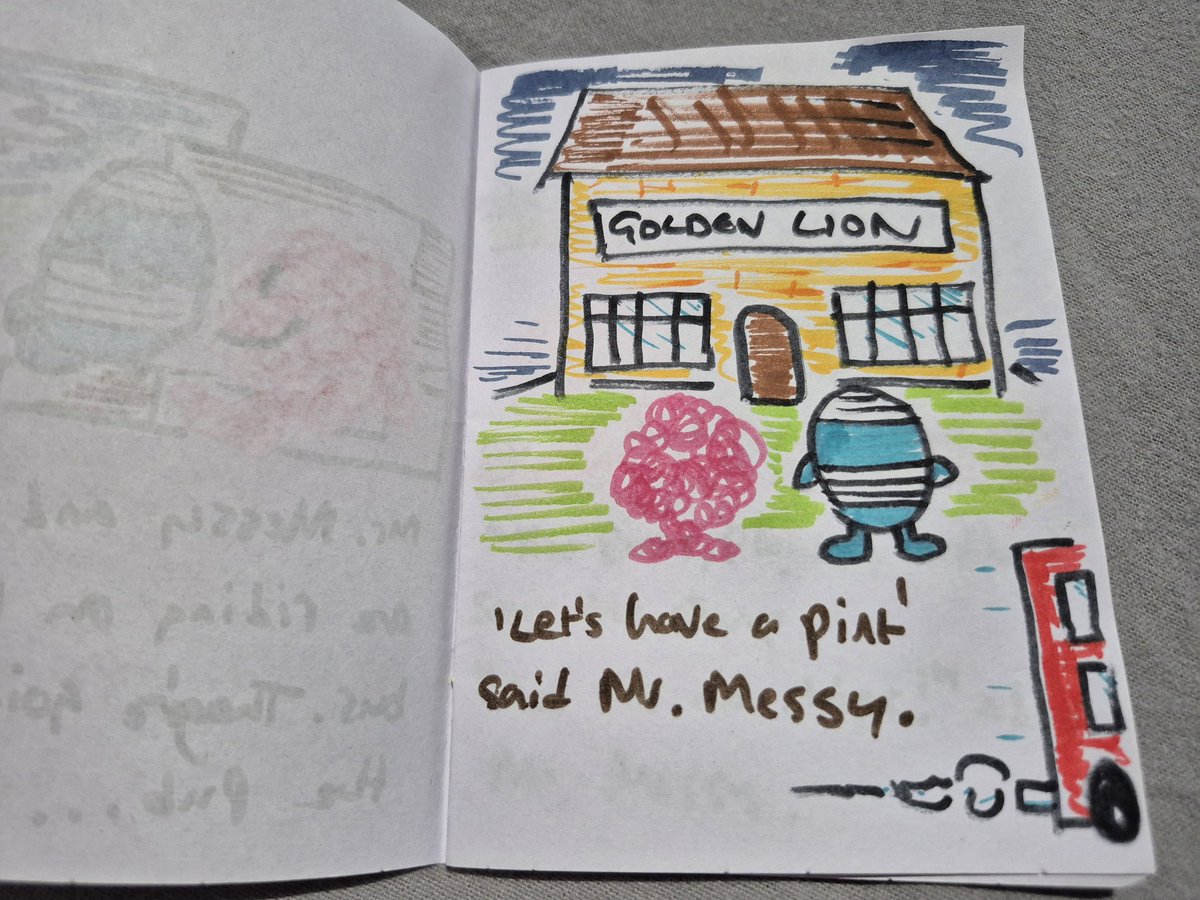 GOLDEN LION
'Let's have a pint'
said Mr. Messy.